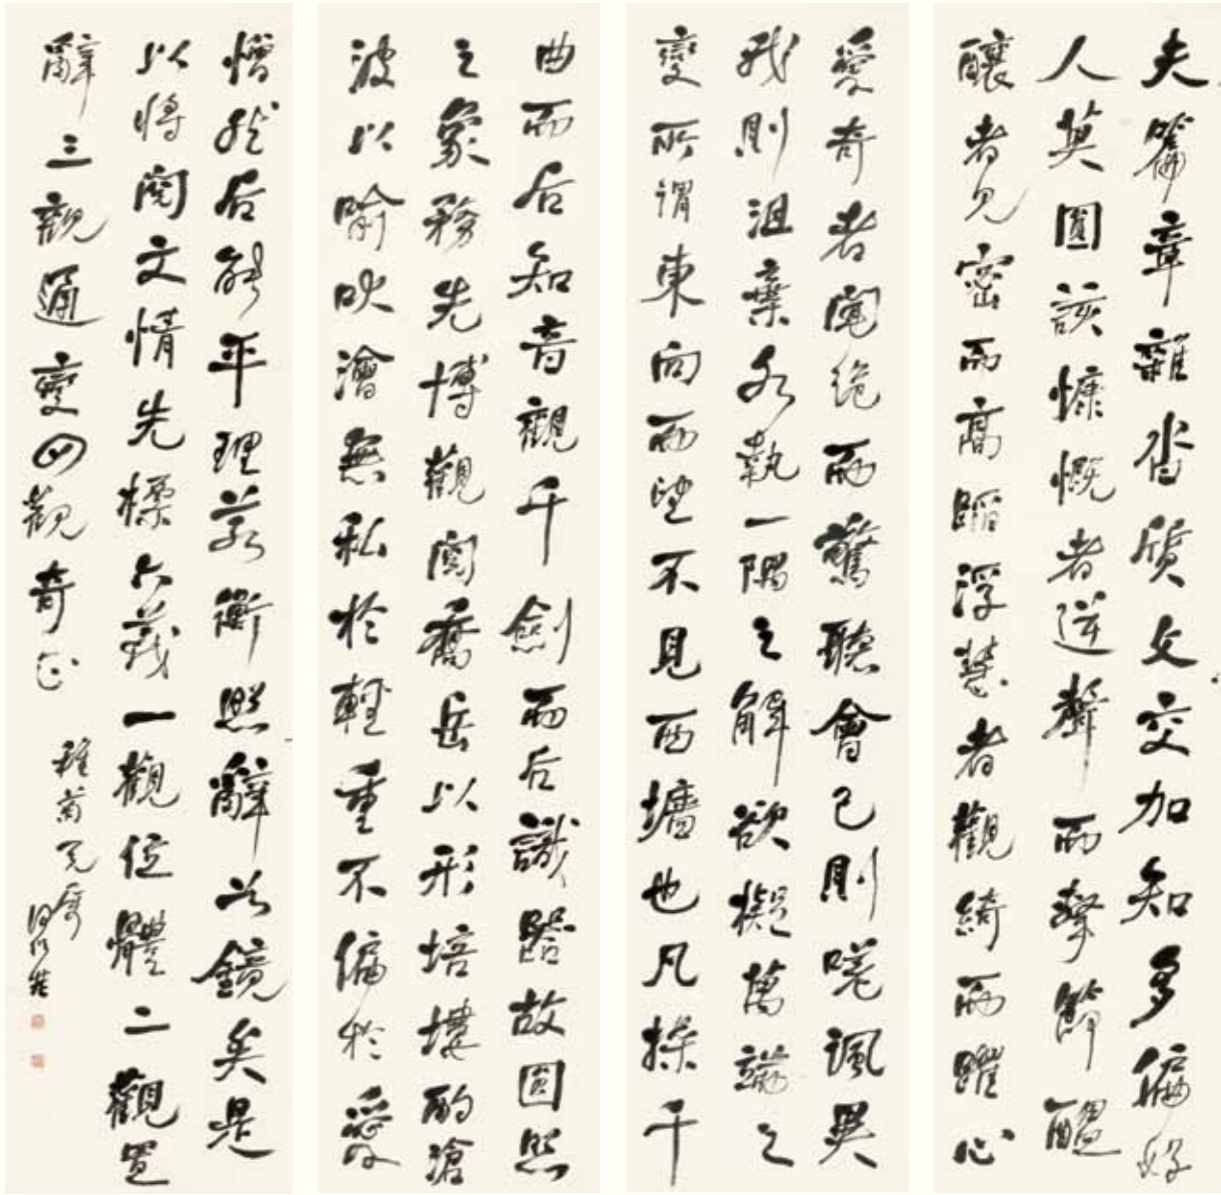 夫篇章雜沓質文交加知多偏好
人莫圓該慷慨者逆聲而擊節醞
釀者見密而高蹈浮慧者觀綺而躍心
愛奇者聞詭而驚聽會己則嗟諷異
我則沮棄各執一隅之解欲擬萬端之
變所謂東向而望不見西墻也凡操千
曲而后知音觀千劍而后識器故圓照
之象務先博觀閱喬岳以形培塿酌滄
波以喻畎澮無私於輕重不偏於愛
憎然后能平理若衡照辭如鏡矣是
以將閱文情先標六義一觀位體二觀置
辭三觀通變四觀奇正
稚菊